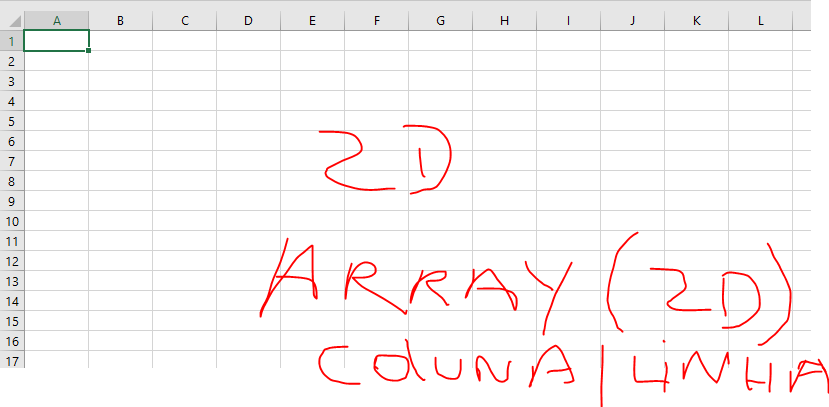 A B C D E F G H I J K L
1
2
3
4
5
6
7
8
9
10
11
12
13
14
15
16
17
2D
ARRAY (2D)
COLUNA | LINHA